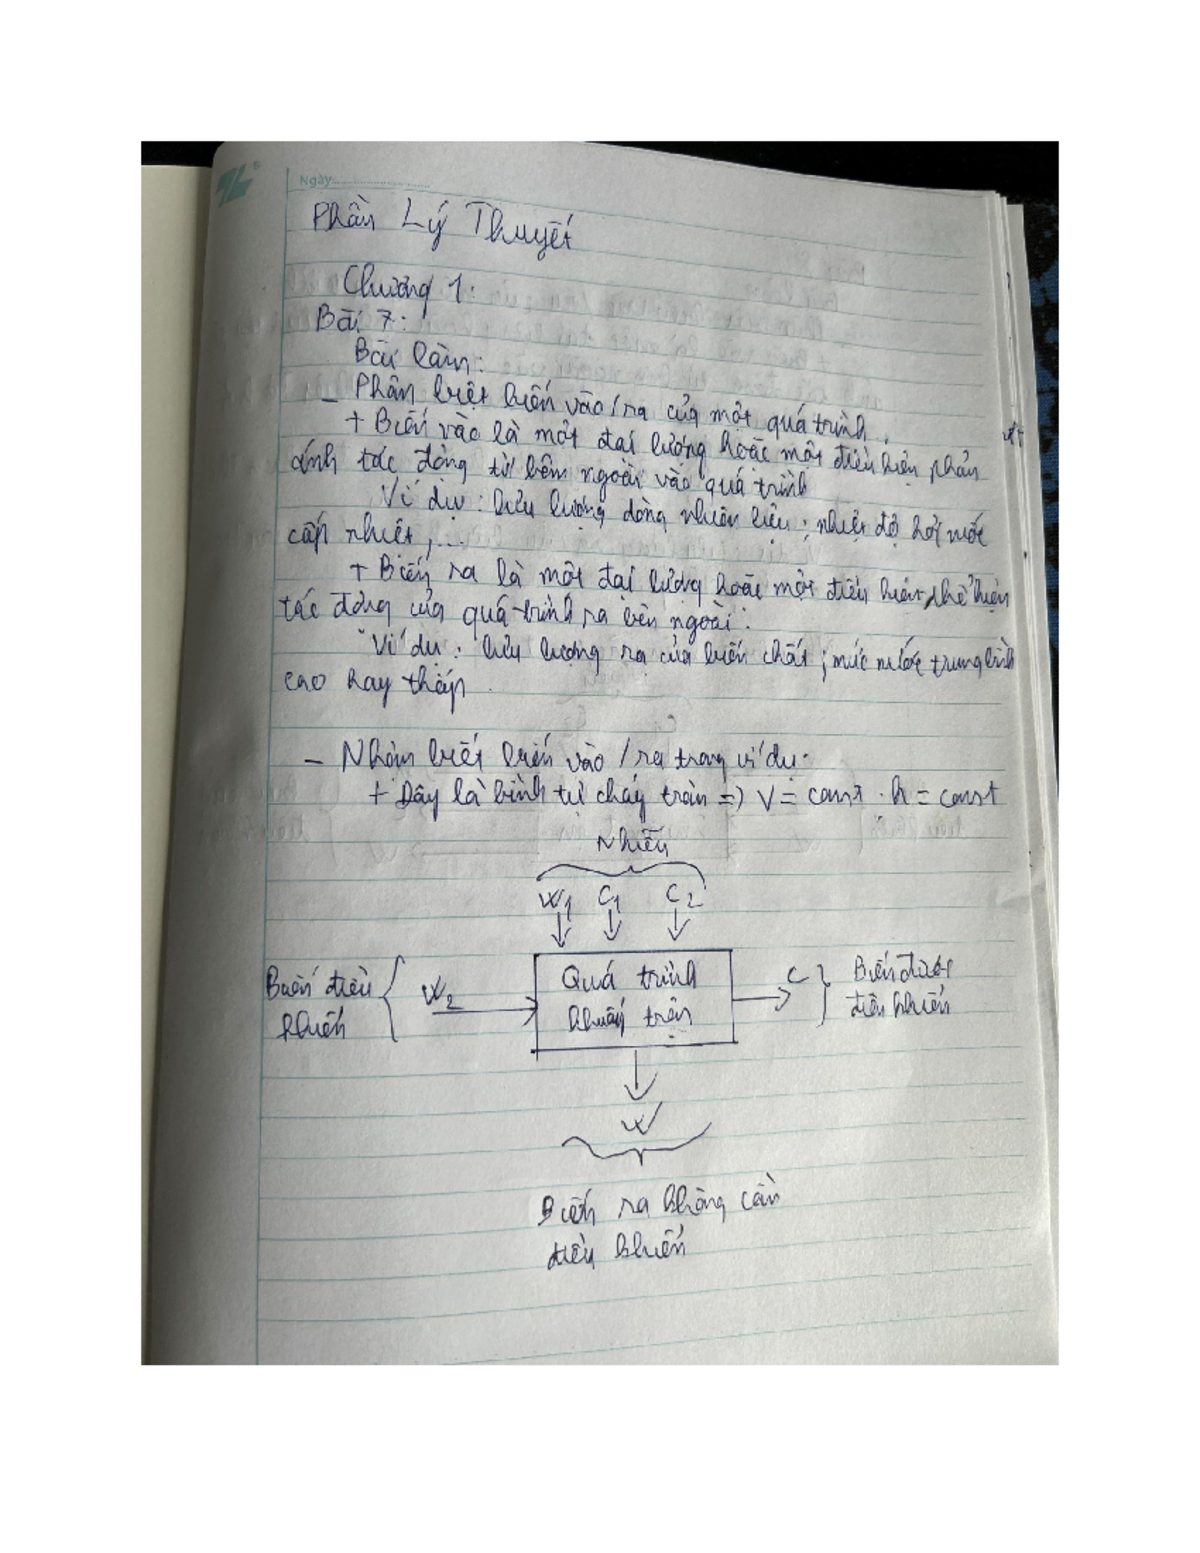 Ngày
Phần Lý Thuyết
Chương 1:
Bài 7:
Bài làm:
- Phân biệt biến vào/ra của một quá trình.
+ Biến vào là một đại lượng hoặc một điều kiện phản
ánh tác động từ bên ngoài vào quá trình
Ví dụ: lưu lượng dòng nhiên liệu; nhiệt độ hơi nước
cấp nhiệt,...
+ Biến ra là một đại lượng hoặc một điều kiện thể hiện
tác động của quá trình ra bên ngoài.
Ví dụ: lưu lượng ra của biến chất; mức nước trung bình
cao hay thấp.
- Nhận biết biến vào/ra trong ví dụ.
+ Đây là bình tự chảy tràn => V = const. h = const
Nhiễu
W1 C1 C2
Biến điều khiển
W2
Quá trình
khuấy trộn
C
Biến được
điều khiển
W
Biến ra không cần
điều khiển